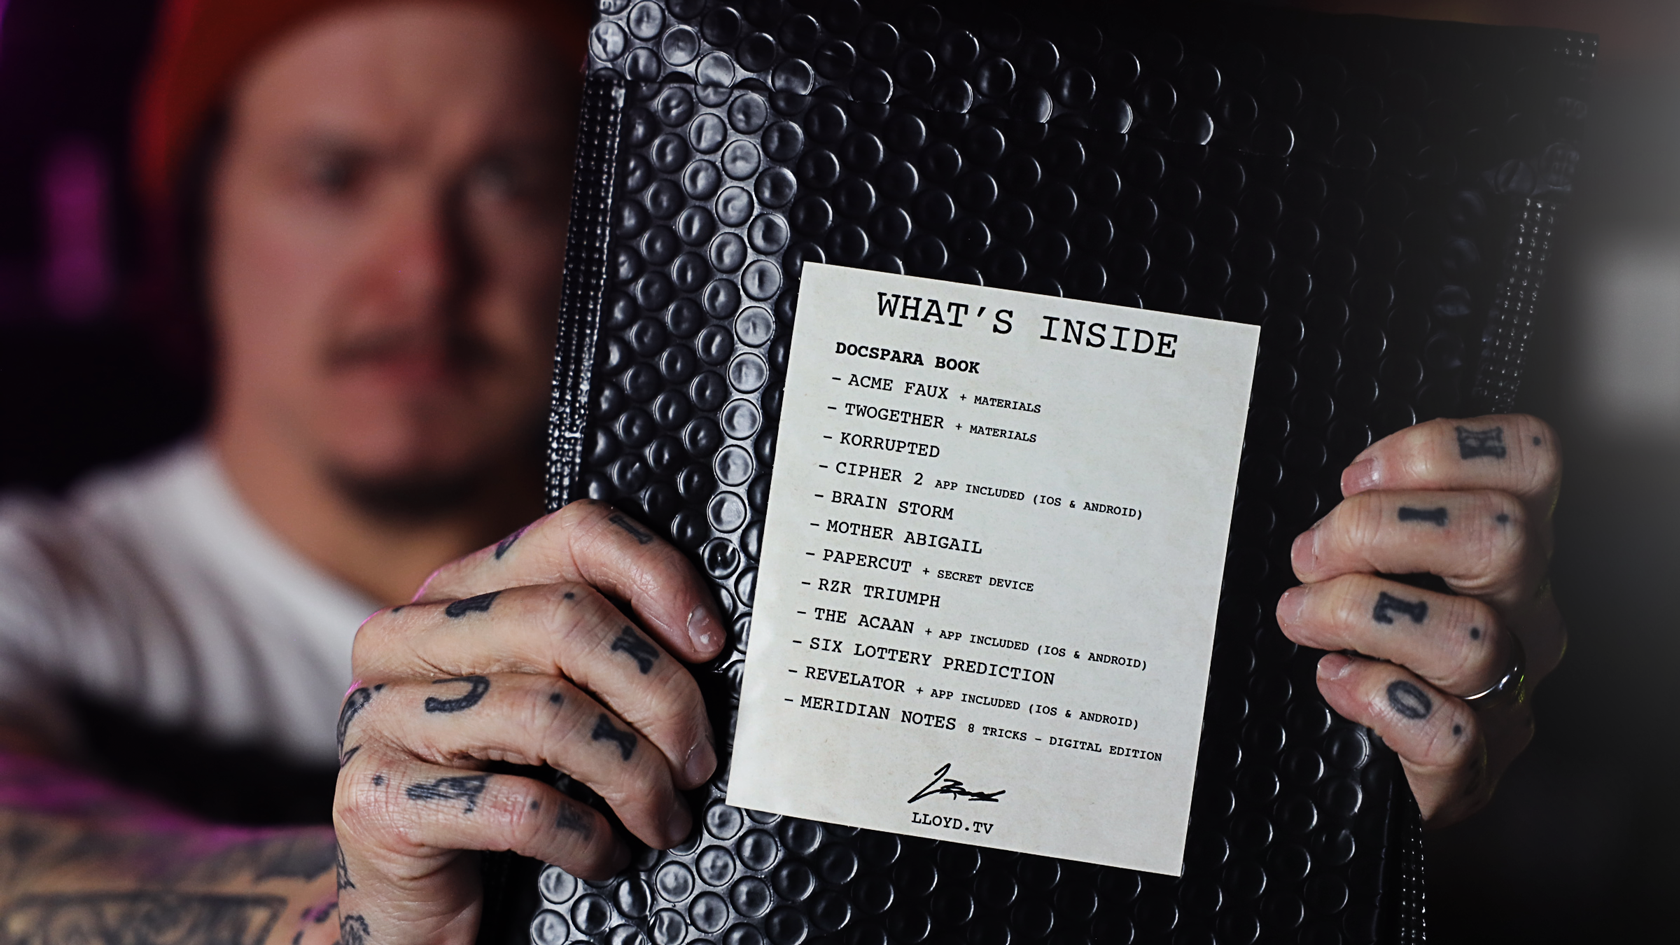 WHAT'S INSIDE
DOCSPARA BOOK
- ACME FAUX + MATERIALS
- TWOGETHER + MATERIALS
- KORRUPTED
- CIPHER 2 APP INCLUDED (IOS & ANDROID)
- BRAIN STORM
- MOTHER ABIGAIL
- PAPERCUT + SECRET DEVICE
- RZR TRIUMPH
- THE ACAAN + APP INCLUDED (IOS & ANDROID)
- SIX LOTTERY PREDICTION
- REVELATOR + APP INCLUDED (IOS & ANDROID)
- MERIDIAN NOTES 8 TRICKS - DIGITAL EDITION
LLOYD.TV